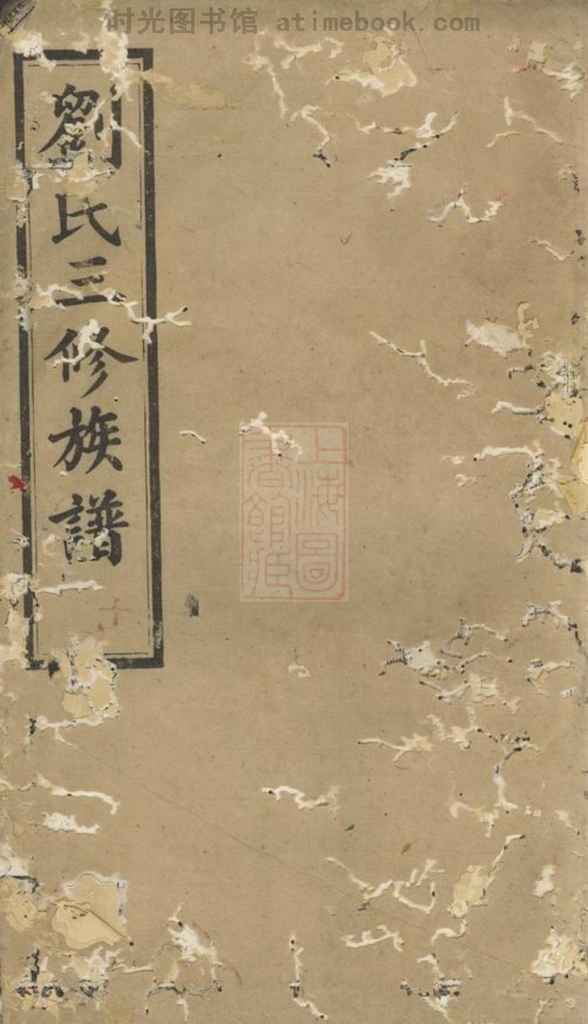 时光图书馆 atimebook.com
劉氏三修族譜
上海圖書館藏